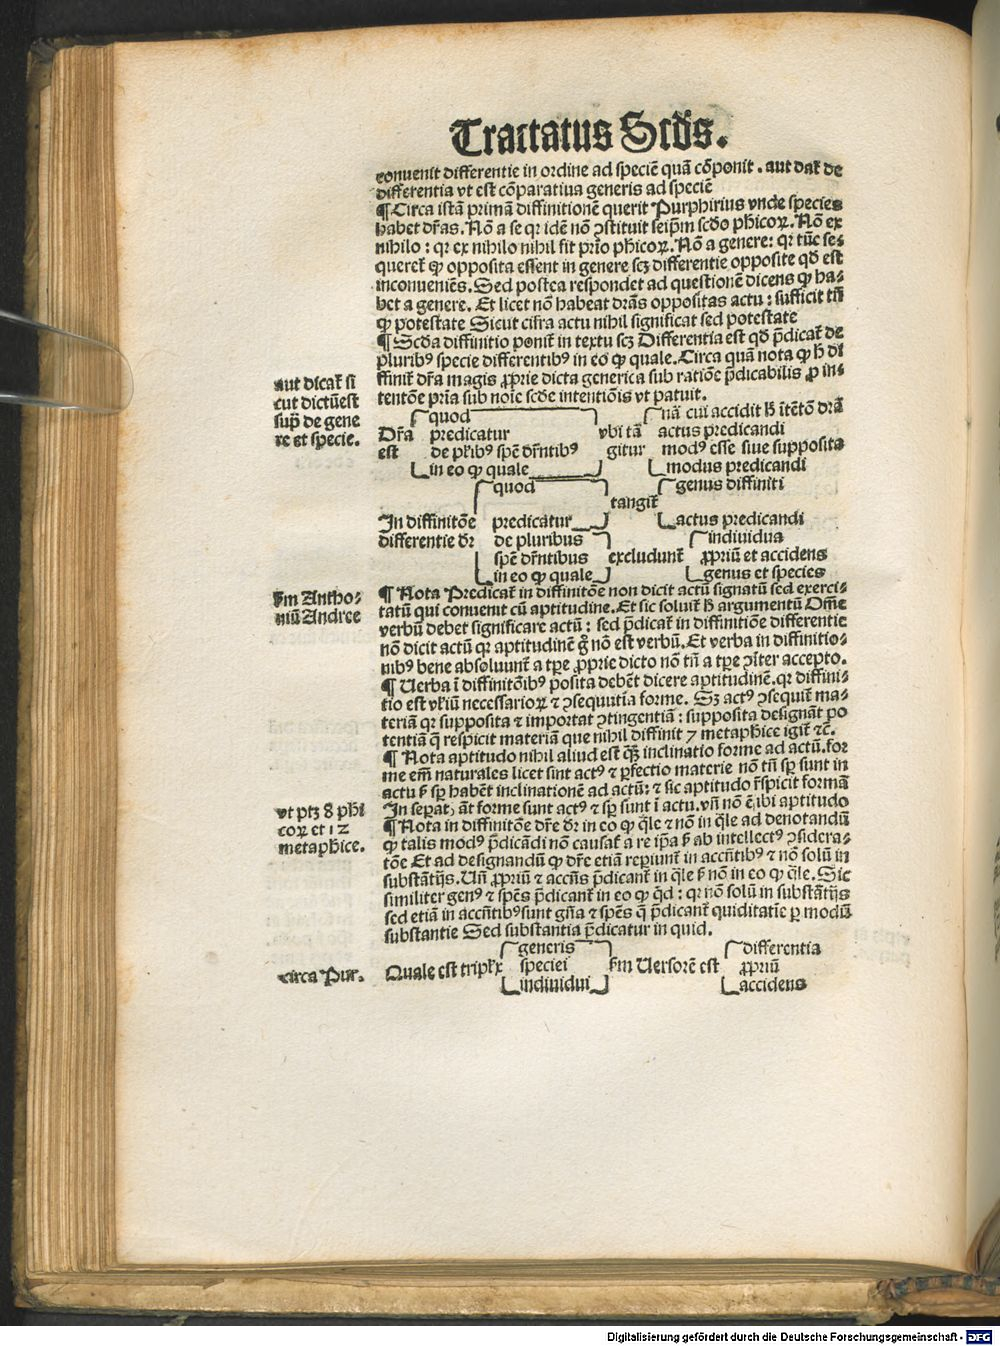 Tractatus Scd̄s.
conuenit differentie in ordine ad speciē quā cōponit. aut dat̄ de
differentia vt est cōparatiua generis ad speciē
¶ Circa istā primā diffinitionē querit Purphirius vnde species
habet dr̄as. Nō a se qꝛ idē nō ꝯstituit seip̄m scd̄o ph̄icoꝝ. Nō ex
nihilo : qꝛ ex nihilo nihil fit prīo ph̄icoꝝ. Nō a genere: qꝛ tūc se⸗
queret̄ ꝙ opposita essent in genere scꝫ differentie opposite qd̄ est
inconueniēs. Sed postea respondet ad questionē dicens ꝙ ha⸗
bet a genere. Et licet nō habeat drās oppositas actu : sufficit tn̄
ꝙ potestate Sicut cifra actu nihil significat sed potestate
¶ Scd̄a diffinitio ponit̄ in textu scꝫ Differentia est qd̄ p̄dicat̄ de
pluribꝰ specie differentibꝰ in eo ꝙ quale. Circa quā nota ꝙ h̄ di
ffinit̄ dr̄a magis ꝓprie dicta generica sub ratiōe p̄dicabilis ꝓ in⸗
tentōe prīa sub noīe scd̄e intentiōis vt patuit.
aut dicat̄ si
cut dictūest
sup̄ de gene
re et specie.
quod nā cui accidit h̄ itētō drā
Dr̄a predicatur vbi tā actus predicandi
est de plr̄ibꝰ spē dr̄ntibꝰ gitur modꝰ esse siue supposita
in eo ꝙ quale modus predicandi
quod genus diffiniti
tangit̄
In diffinitōe predicatur actus predicandi
differentie dr̄ de pluribus individua
spē dr̄ntibus excludunt̄ ꝓpriū et accidens
in eo ꝙ quale genus et species
fm Antho⸗
niū Andree
¶ Nota Predicat̄ in diffinitōe non dicit actū signatū sed exerci⸗
tatū qui conuenit cū aptitudine. Et sic soluit̄ h̄ argumentū Om̄e
verbū debet significare actū : sed p̄dicat̄ in diffinitiōe differentie
nō dicit actū qꝛ aptitudinē g̊ nō est verbū. Et verba in diffinitio⸗
nibꝰ bene absoluunt̄ a tꝑe ꝓprie dicto nō tn̄ a tꝑe ꝯīter accepto.
¶ Uerba ī diffinitōibꝰ posita debēt dicere aptitudinē. qꝛ diffini⸗
tio est vl̄iū necessarioꝝ ⁊ ꝯsequutīa forme. Sꝫ actꝰ ꝯsequit̄ ma⸗
teriā qꝛ supposita ⁊ importat ꝯtingentiā : supposita designāt po
tentiā q̄ respicit materiā que nihil diffinit 7 metaph̄ice igit̄ ⁊c̄.
¶ Nota aptitudo nihil aliud est qꝫ inclinatio forme ad actū. for
me em̄ naturales licet sint actꝰ ⁊ ꝑfectio materie nō tn̄ sꝑ sunt in
actu s̄ sꝑ habēt inclinationē ad actū: ⁊ sic aptitudo r̄spicit formā
In seꝑat. āt forme sunt actꝰ ⁊ sꝑ sunt ī actu. vn̄ nō ē ibi aptitudo
vt ptꝫ 8 ph̄i
coꝝ et 12
metaph̄ice.
¶ Nota in diffinitōe dr̄e dr̄ in eo ꝙ q̄le ⁊ nō in q̄le ad denotandū
ꝙ talis modꝰ p̄dicādi nō causat̄ a re ip̄a s̄ ab intellectꝰ ꝯsidera⸗
tōe Et ad designandū ꝙ dr̄e etiā reꝑiunt̄ in accn̄tibꝰ ⁊ nō solū in
substātijs. Un̄ ꝓpriū ⁊ accn̄s p̄dicant̄ in q̄le s̄ nō in eo ꝙ q̄le. Sic
similiter genꝰ ⁊ spēs p̄dicant̄ in eo ꝙ qd̄ : qꝛ nō solū in substātijs
sed etiā in accn̄tibꝰ sunt gn̄a ⁊ spēs q̄ p̄dicant̄ quiditatīe ꝑ modū
substantie Sed substantia p̄dicatur in quid.
circa Pur.
generis differentia
Quale est triplx̄ speciei fm Uersorē est ꝓpriū
individui accidens
Digitalisierung gefördert durch die Deutsche Forschungsgemeinschaft - DFG